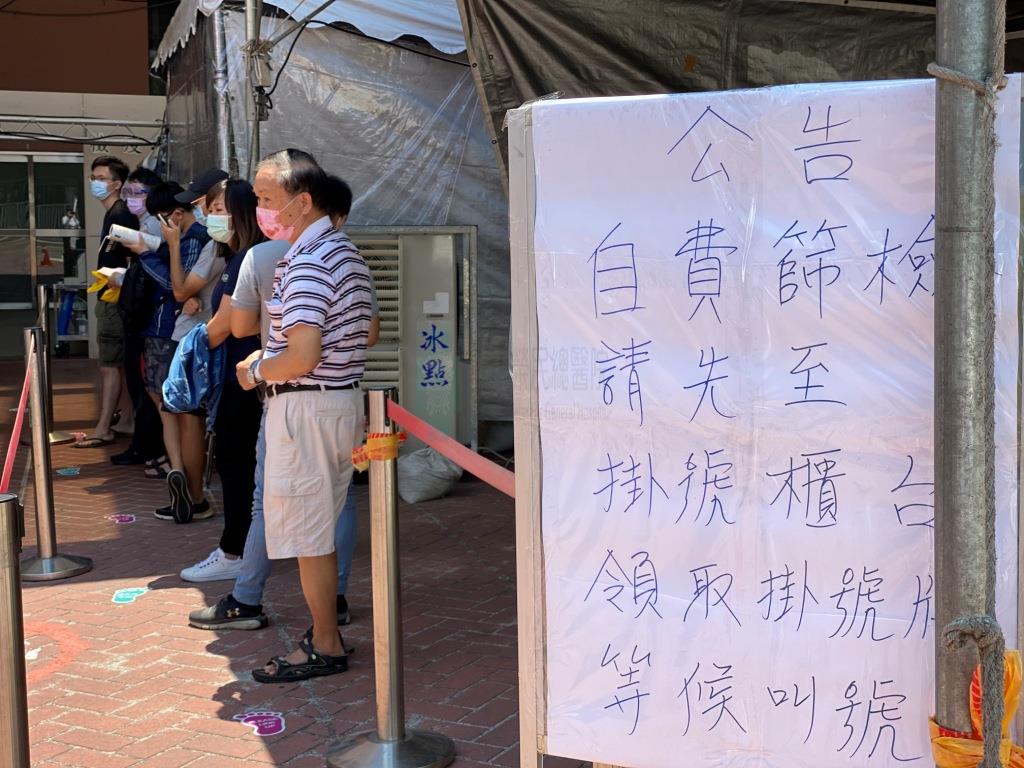 公告
自費篩檢
請先至
掛號櫃台
領取掛號牌
等候叫號
冰點